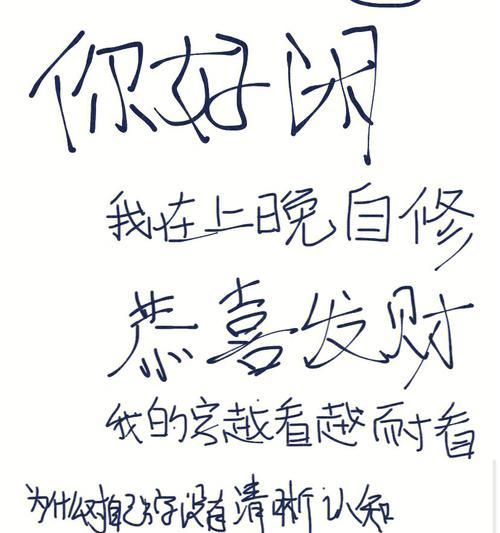 你好闲
我在上晚自修
恭喜发财
我的字越看越耐看
为什么对自己的字没有清晰认知